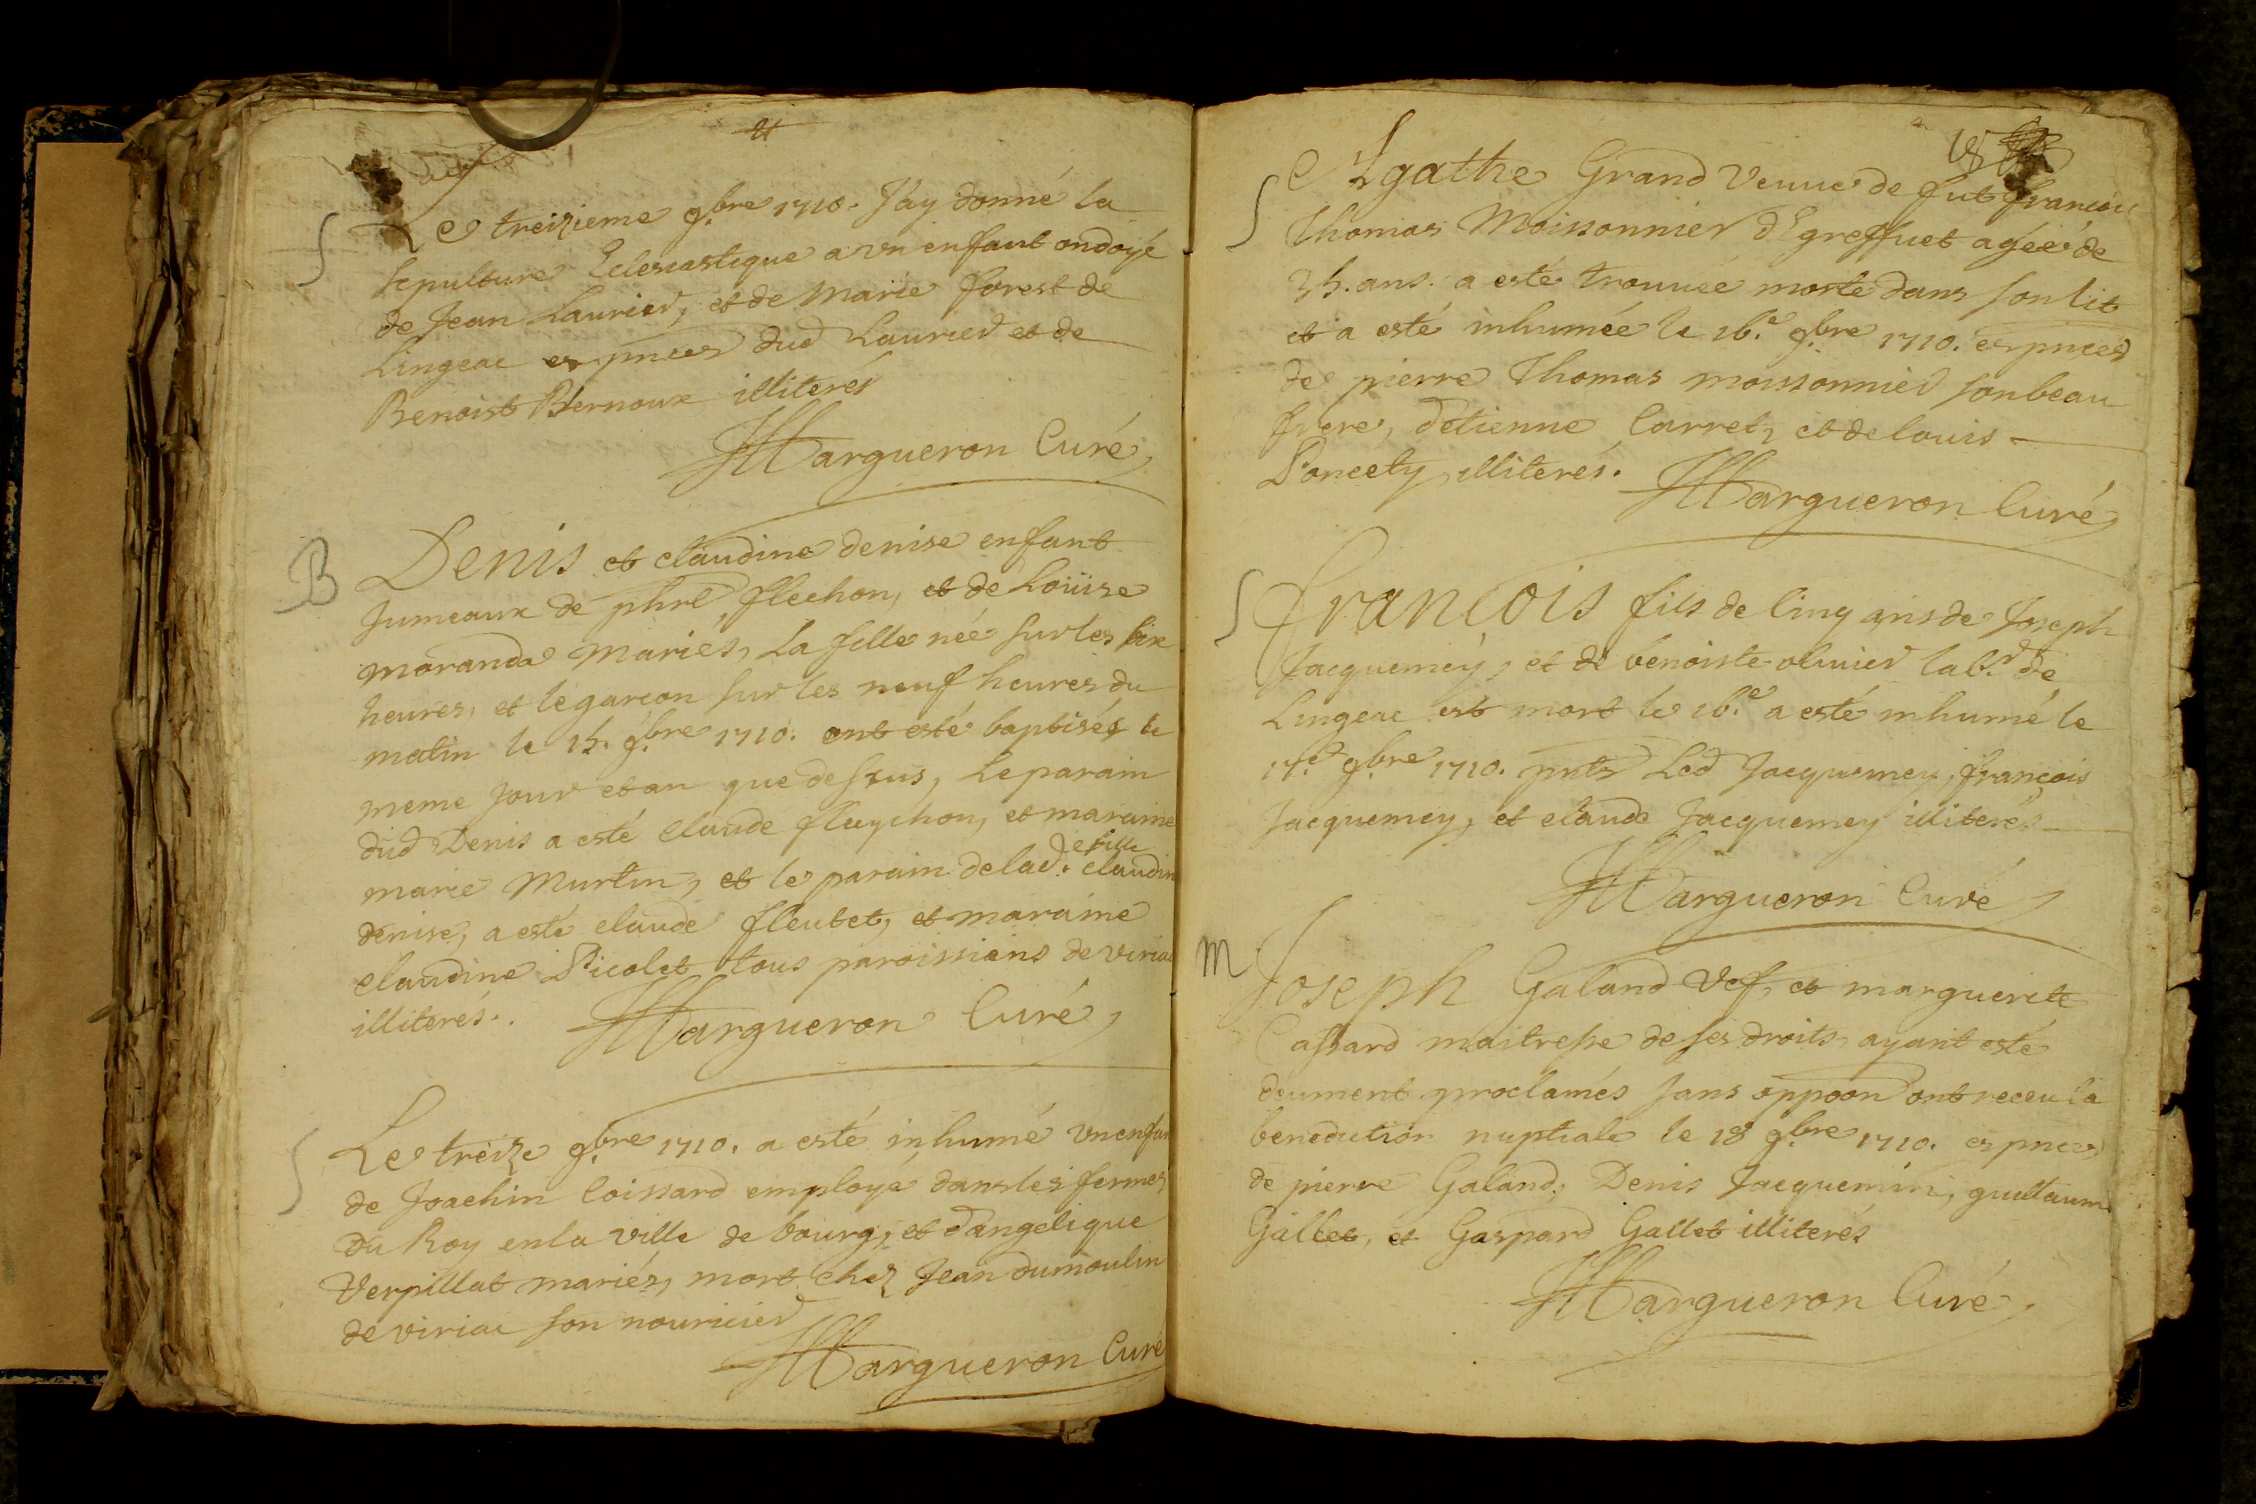 S
Le treizieme 9.bre 1710. J'ay donné la
sepulture Eclesiastique a un enfant ondoyé
de Jean Laurier, et de marie forest de
Lingeac es pnces dud Laurier et de
Benoist Bernoux illiterés
Margueron Curé
B
Denis et claudine denise enfant
Jumeaux de phel flechon, et de Loüise
moranda mariés, La fille née sur les six
heures, et le garcon sur les neuf heures du
matin le 15. 9.bre 1710. ont esté baptisés le
meme jour et an que dessus, Le parain
dud Denis a esté claude fleychon, et maraine
marie Murtin, et le parain de lad.e fille claudine
denise, a esté claude fleutet, et maraine
claudine Picolet tous paroissiens de viriac
illiterés.
Margueron Curé
S
Le treize 9.bre 1710. a esté inhumé un enfan
de Joachin Coissard employé dans les fermes
du Roy en la ville de bourg, et d'angelique
Verpillat mariés, mort chez Jean dumoulin
de viriac son nouricier
Margueron Curé
S
Agathe Grand veuve de fut francois
Thomas Moissonnier d'Egreffuet agée de
35. ans. a esté trouuée morte dans son lit
et a esté inhumée le 16.e 9.bre 1710. es pnces
de pierre Thomas moissonnier son beau
frere, d'etienne Carret, et de louis
Poncety illiterés.
Margueron Curé
S
francois fils de cinq ans de Joseph
Jacquemey, et de benoiste oliuier lab.r de
Lingeac est mort le 16.e a esté inhumé le
17.e 9.bre 1710. pnts Led Jacquemey, françois
Jacquemey, et claude Jacquemey illiterés
Margueron Curé
M
Joseph Galand Vef, et marguerite
Cassard maitresse de ses droits, ayant esté
deument proclamés sans oppoon ont receu la
benediction nuptiale le 18 9.bre 1710. es pnces
de pierre Galand, Denis Jacquemin, guillaum
Gallet, et Gaspard Gallet illiterés
Margueron Curé